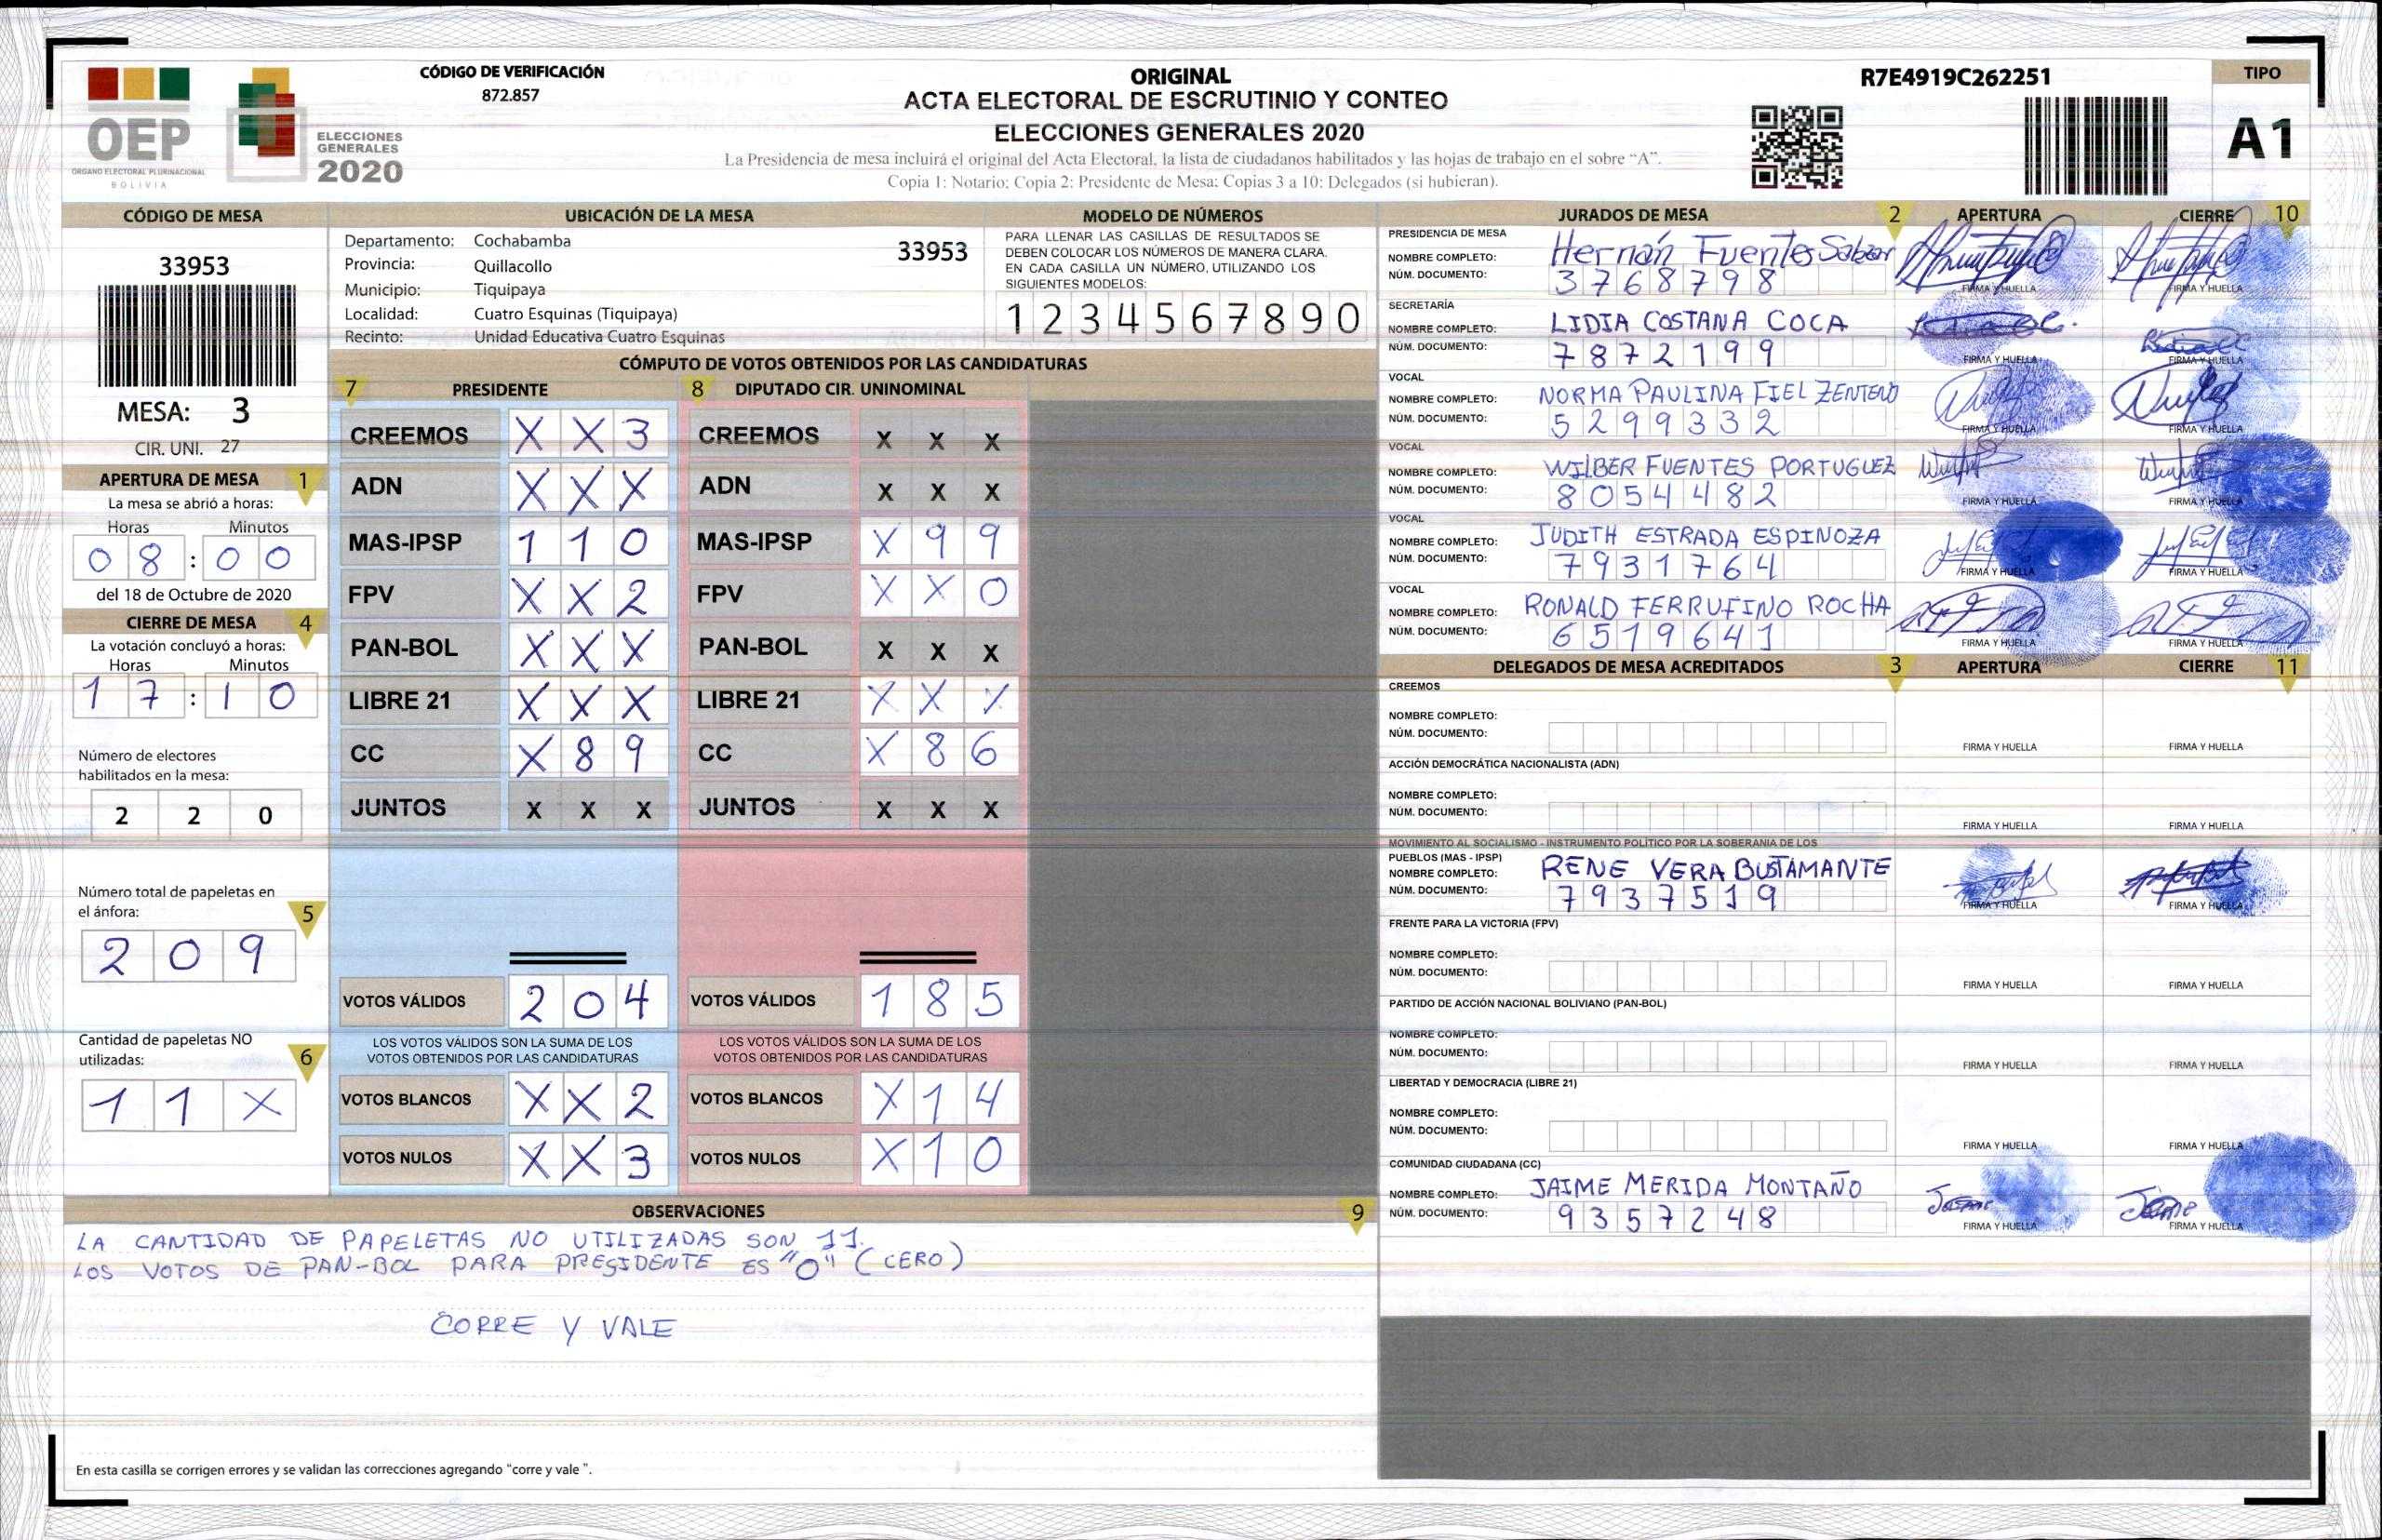 OEP
ÓRGANO ELECTORAL PLURINACIONAL
BOLIVIA
ELECCIONES
GENERALES
2020
CÓDIGO DE VERIFICACIÓN
872.857
ORIGINAL
ACTA ELECTORAL DE ESCRUTINIO Y CONTEO
ELECCIONES GENERALES 2020
La Presidencia de mesa incluirá el original del Acta Electoral, la lista de ciudadanos habilitados y las hojas de trabajo en el sobre “A”.
Copia 1: Notario; Copia 2: Presidente de Mesa; Copias 3 a 10: Delegados (si hubieran).
R7E4919C262251
TIPO
A1
CÓDIGO DE MESA
33953
MESA: 3
CIR. UNI. 27
APERTURA DE MESA 1
La mesa se abrió a horas:
Horas Minutos
0 8 : 0 0
del 18 de Octubre de 2020
CIERRE DE MESA 4
La votación concluyó a horas:
Horas Minutos
1 7 : 1 0
Número de electores
habilitados en la mesa:
2 2 0
Número total de papeletas en
el ánfora: 5
2 0 9
Cantidad de papeletas NO
utilizadas: 6
1 1 X
UBICACIÓN DE LA MESA
Departamento: Cochabamba 33953
Provincia: Quillacollo
Municipio: Tiquipaya
Localidad: Cuatro Esquinas (Tiquipaya)
Recinto: Unidad Educativa Cuatro Esquinas
MODELO DE NÚMEROS
PARA LLENAR LAS CASILLAS DE RESULTADOS SE
DEBEN COLOCAR LOS NÚMEROS DE MANERA CLARA.
EN CADA CASILLA UN NÚMERO, UTILIZANDO LOS
SIGUIENTES MODELOS:
1 2 3 4 5 6 7 8 9 0
CÓMPUTO DE VOTOS OBTENIDOS POR LAS CANDIDATURAS
7 PRESIDENTE 8 DIPUTADO CIR. UNINOMINAL
CREEMOS X X 3 CREEMOS X X X
ADN X X X ADN X X X
MAS-IPSP 1 1 0 MAS-IPSP X 9 9
FPV X X 2 FPV X X 0
PAN-BOL X X X PAN-BOL X X X
LIBRE 21 X X X LIBRE 21 X X X
CC X 8 9 CC X 8 6
JUNTOS X X X JUNTOS X X X
VOTOS VÁLIDOS 2 0 4 VOTOS VÁLIDOS 1 8 5
LOS VOTOS VÁLIDOS SON LA SUMA DE LOS LOS VOTOS VÁLIDOS SON LA SUMA DE LOS
VOTOS OBTENIDOS POR LAS CANDIDATURAS VOTOS OBTENIDOS POR LAS CANDIDATURAS
VOTOS BLANCOS X X 2 VOTOS BLANCOS X 1 4
VOTOS NULOS X X 3 VOTOS NULOS X 1 0
OBSERVACIONES 9
LA CANTIDAD DE PAPELETAS NO UTILIZADAS SON 11.
LOS VOTOS DE PAN-BOL PARA PRESIDENTE ES "0" (CERO)
CORRE Y VALE
En esta casilla se corrigen errores y se validan las correcciones agregando “corre y vale ”.
JURADOS DE MESA 2 APERTURA CIERRE 10
PRESIDENCIA DE MESA
NOMBRE COMPLETO: Hernán Fuentes
NÚM. DOCUMENTO: 3768798
FIRMA Y HUELLA FIRMA Y HUELLA
SECRETARÍA
NOMBRE COMPLETO: LIDIA COSTANA COCA
NÚM. DOCUMENTO: 7872199
FIRMA Y HUELLA FIRMA Y HUELLA
VOCAL
NOMBRE COMPLETO: NORMA PAULINA FIEL ZENTENO
NÚM. DOCUMENTO: 5299332
FIRMA Y HUELLA FIRMA Y HUELLA
VOCAL
NOMBRE COMPLETO: WILBER FUENTES PORTUGUEZ
NÚM. DOCUMENTO: 8054482
FIRMA Y HUELLA FIRMA Y HUELLA
VOCAL
NOMBRE COMPLETO: JUDITH ESTRADA ESPINOZA
NÚM. DOCUMENTO: 7931764
FIRMA Y HUELLA FIRMA Y HUELLA
VOCAL
NOMBRE COMPLETO: RONALD FERRUFINO ROCHA
NÚM. DOCUMENTO: 6519641
FIRMA Y HUELLA FIRMA Y HUELLA
DELEGADOS DE MESA ACREDITADOS 3 APERTURA CIERRE 11
CREEMOS
NOMBRE COMPLETO:
NÚM. DOCUMENTO:
FIRMA Y HUELLA FIRMA Y HUELLA
ACCIÓN DEMOCRÁTICA NACIONALISTA (ADN)
NOMBRE COMPLETO:
NÚM. DOCUMENTO:
FIRMA Y HUELLA FIRMA Y HUELLA
MOVIMIENTO AL SOCIALISMO - INSTRUMENTO POLÍTICO POR LA SOBERANIA DE LOS
PUEBLOS (MAS - IPSP)
NOMBRE COMPLETO: RENE VERA BUSTAMANTE
NÚM. DOCUMENTO: 7937519
FIRMA Y HUELLA FIRMA Y HUELLA
FRENTE PARA LA VICTORIA (FPV)
NOMBRE COMPLETO:
NÚM. DOCUMENTO:
FIRMA Y HUELLA FIRMA Y HUELLA
PARTIDO DE ACCIÓN NACIONAL BOLIVIANO (PAN-BOL)
NOMBRE COMPLETO:
NÚM. DOCUMENTO:
FIRMA Y HUELLA FIRMA Y HUELLA
LIBERTAD Y DEMOCRACIA (LIBRE 21)
NOMBRE COMPLETO:
NÚM. DOCUMENTO:
FIRMA Y HUELLA FIRMA Y HUELLA
COMUNIDAD CIUDADANA (CC)
NOMBRE COMPLETO: JAIME MERIDA MONTAÑO
NÚM. DOCUMENTO: 9357248
FIRMA Y HUELLA FIRMA Y HUELLA